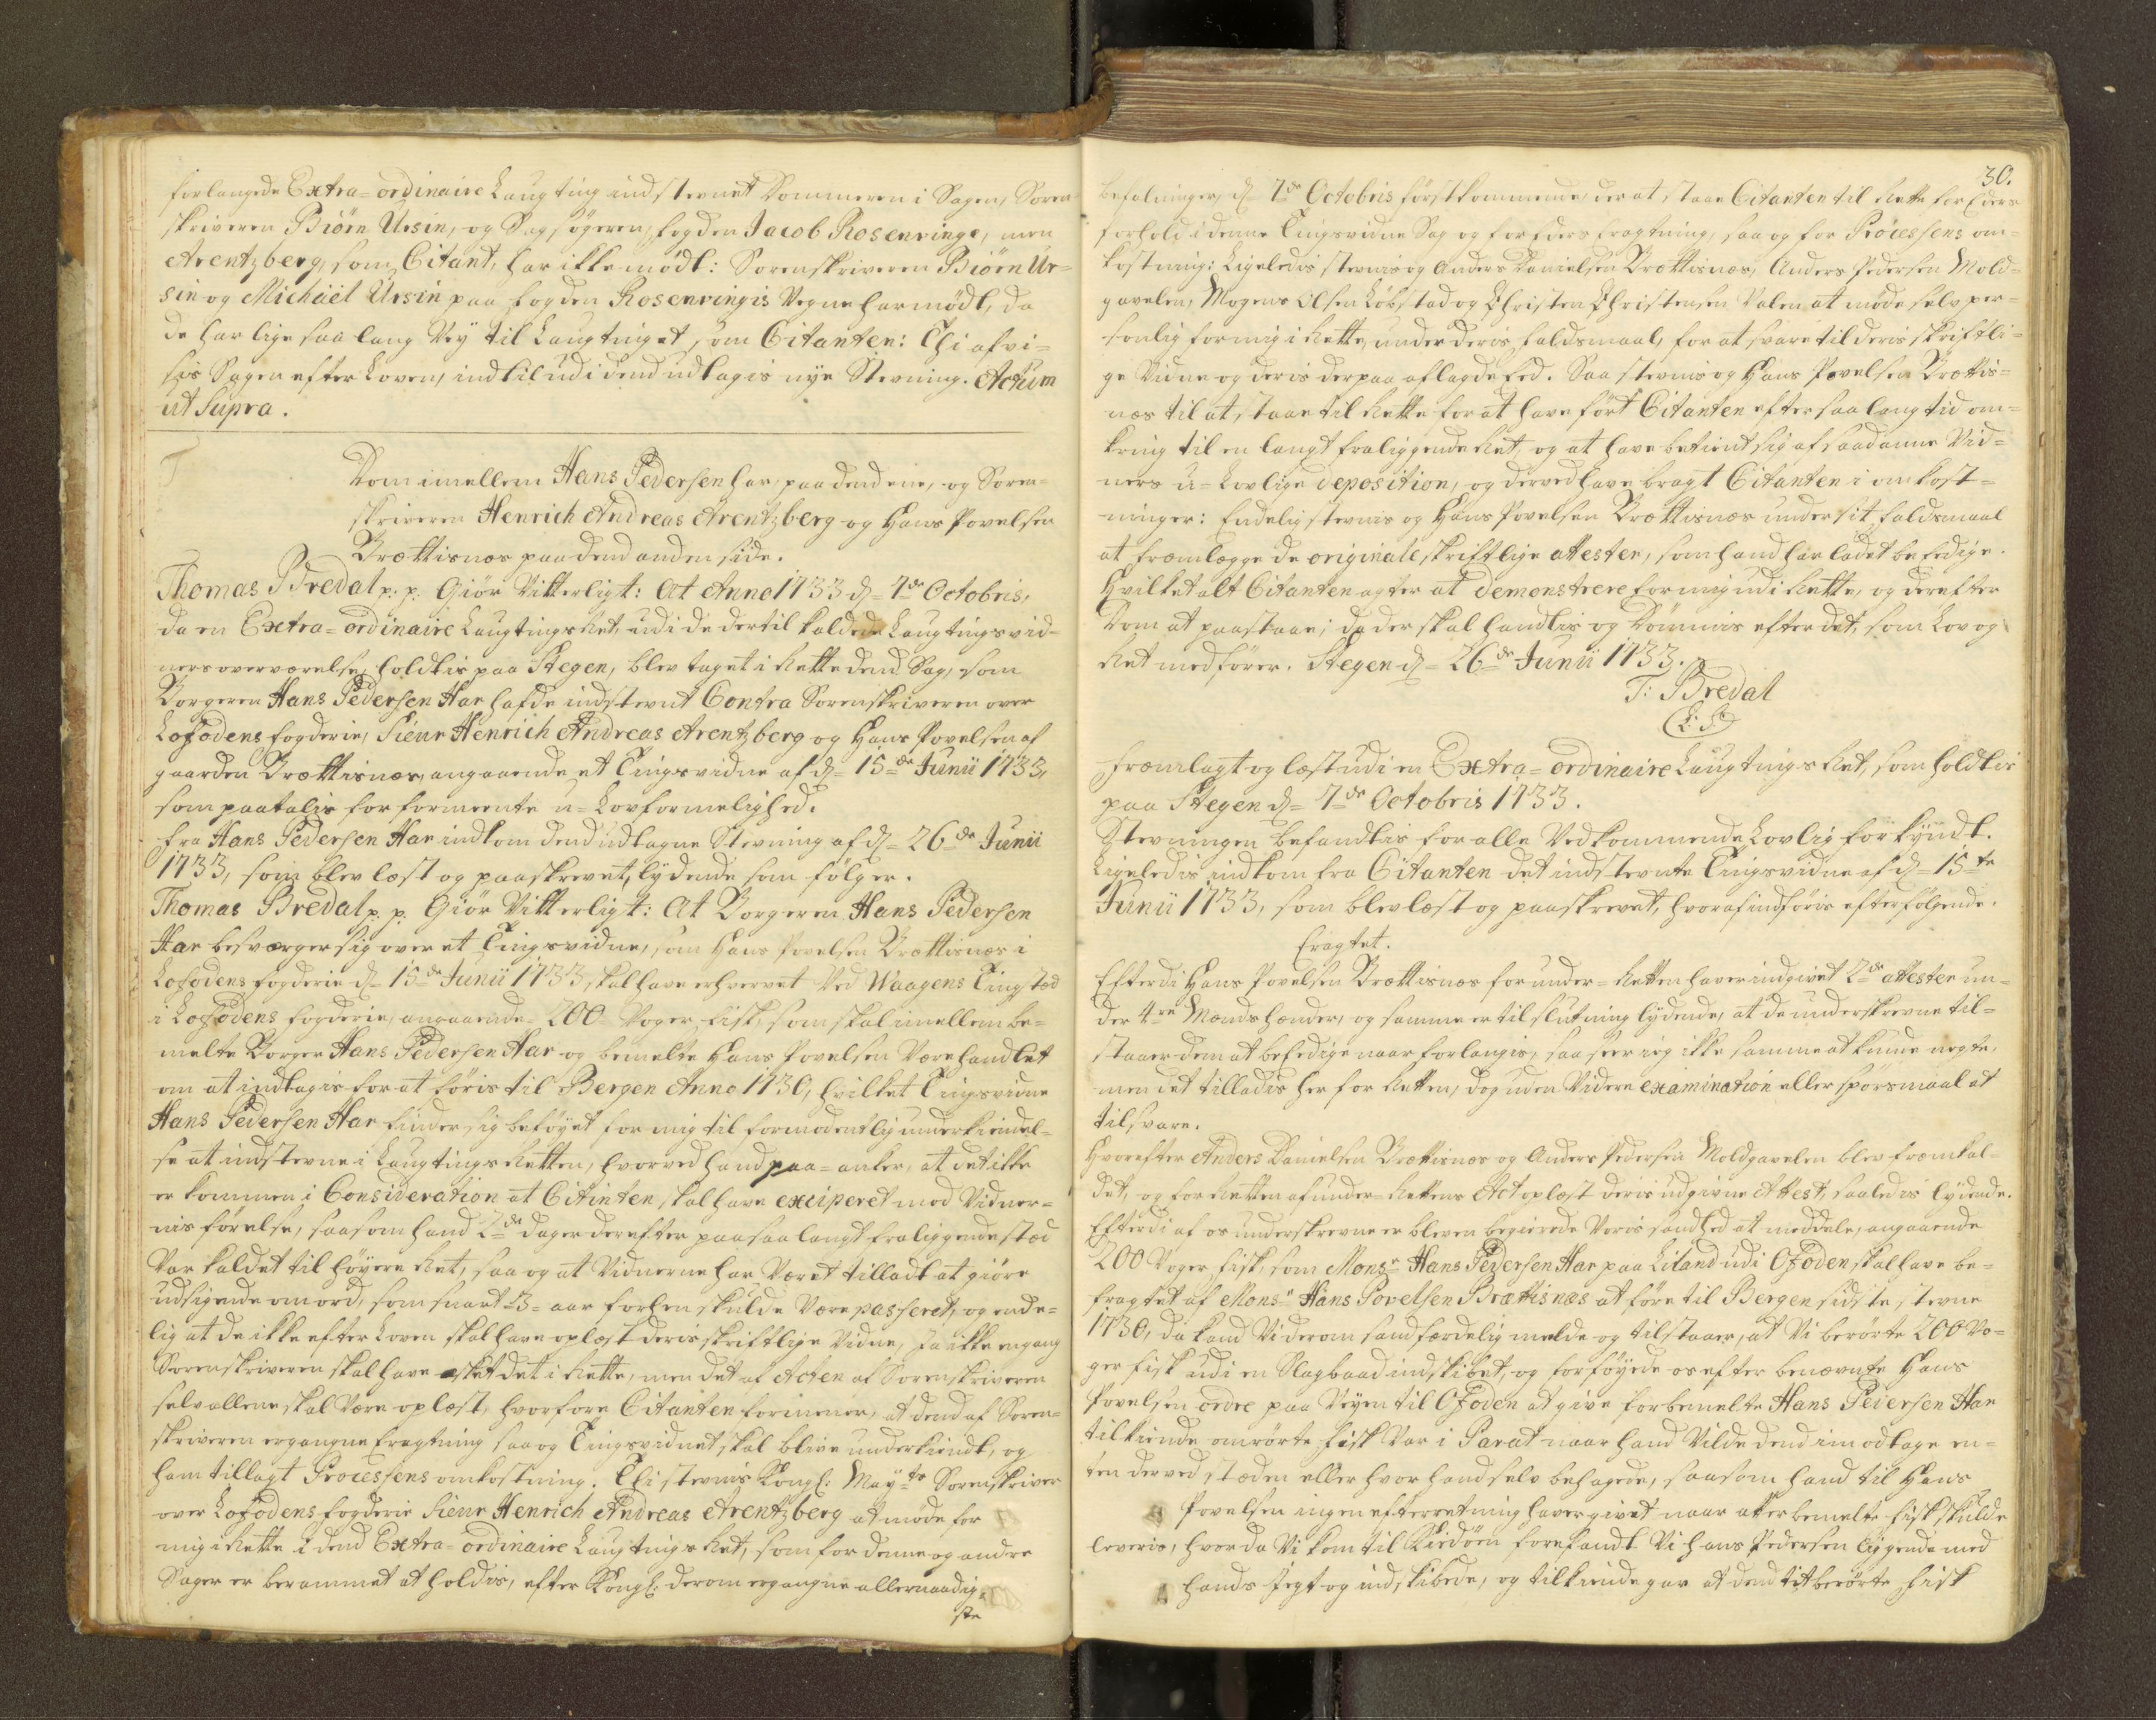 forlangede Extra=ordinaire Laugting indstevnet Dommeren i Sagen, Soren
skriveren Biörn Ursin, og Sagsögeren, fogden Jacob Rosenvinge, men
Arentzberg, som Citant, har ikke mödt: Sorenskriveren Biörn Ur=
sin og Michäel Ursin paa fogden Rosenvingis Vegne har mödt, da
de har lige saa lang Vey til Laugtinget, som Citanten: Thi afvi=
sis Sagen efter Loven, indtil udi dend udtagis nye Stevning. Actum
ut Supra.
Dom imellem Hans Pedersen Har, paa dend ene, og Soren=
skriveren Henrich Andreas Arentzberg og Hans Povelsen
Brættisnæs paa dend anden side.
Thomas Bredal p. p. Giör Vitterligt: At Anno 1733 d= 7de Octobris,
da en Extra=ordinaire Laugtings Ret, udi de dertil kaldede Laugtings vid=
ners overværelse, holdtis paa Stegen, blev taget i Rette dend Sag, som
Borgeren Hans Pedersen Har hafde indstevnt Contra Sorenskriveren over
Lofodens fogderie, Sieur Henrich Andreas Arentzberg og Hans Povelsen af
gaarden Brættisnæs, angaaende et Tingsvidne af d= 15de Junii 1733,
som paatalis for formeente u=Lovformelighed.
Fra Hans Pedersen Har indkom dend udtagne Stevning af d= 26de Junii
1733, som blev læst og paaskrevet, lydende som fölger.
Thomas Bredal p. p. Giör Vitterligt: At Borgeren Hans Pedersen
Har besværger sig over et Tingsvidne, som Hans Povelsen Brættisnæs i
Lofodens fogderie d= 15de Junii 1733, skal have erhvervet Ved Waagens Tingsted
i Lofodens fogderie, angaaende 200 Voger fisk, som skal imellem be=
melte Borger Hans Pedersen Har og bemelte Hans Povelsen Være handlet
om at indtagis for at föris til Bergen Anno 1730, hvilket Tingsvidne
Hans Pedersen Har finder sig beföyet for mig til formodentlig underkiendel=
se at indstevne i Laugtings Retten, hvorved hand paa=anker, at det ikke
er kommen i Consideration at Citinten skal have exciperet mod Vidner=
nis förelse, saasom hand 2de dager derefter paa saa langt fraliggende sted
Var kaldet til höyere Ret, saa og at Vidnerne har Været tilladt at giöre
udsigende om ord, som snart 3= aar forhen skulde Være passeret, og ende=
lig at de ikke efter Loven skal have oplæst deris skriftlige Vidne, Ja ikke engang
Sorenskriveren skal have æsket det i Rette, men det af Acten af Sorenskriveren
selv allene skal Være oplæst, hvorfore Citanten formener, at dend af Soren=
skriveren ergangne Eragtning saa og Tingsvidnet skal blive underkiendt, og
ham tillagt Processens omkostning. Thi stevnis Kongl: Mayts Sorenskriver
over Lofodens fogderie Sieur Henrich Andreas Arentzberg at möde for
mig i Rette i dend Extra=ordinaire Laugtings Ret, som for denne og andre
Sager er berammet at holdis, efter Kongl: derom ergangne allernaadig=
ste
30.
befalninger, d= 7de Octobris förstkommende, der at staae Citanten til Rette for Eders
forhold i denne Tingsvidne Sag og for Eders Eragtning, saa og for Processens om=
kostning: Ligeledis stevnis og Anders Danielsen Brættisnæs, Anders Pedersen Mold=
gavelen, Mogens Olsen Löbstad og Christen Christensen Valen at möde selv per=
sonlig for mig i Rette, under deris faldsmaal, for at svare til deris skriftli=
ge Vidne og deris derpaa aflagde Eed. Saa stevnis og Hans Povelsen Brættis=
næs til at staae til Rette for at have fört Citanten efter saa lang tid om=
kring til en langt fraliggende Ret, og at have betient sig af saadanne Vid=
ners u=Lovlige deposition, og derved have bragt Citanten i omkost=
ninger: Endelig stevnis og Hans Povelsen Brættisnæs under sit faldsmaal
at fremlegge de originale skriftlige attester, som hand har ladet beEedige.
Hvilket alt Citanten agter at demonstrere for mig udi Rette, og derefter
Dom at paastaae; da der skal handlis og Dömmis efter det, som Lov og
Ret medförer. Stegen d= 26de Junii 1733.
T: Bredal
(L: S)
Fremlagt og læst udi en Extra=ordinaire Laugtings Ret, som holdtis
paa Stegen d= 7de Octobris 1733.
Stevningen befandtis for alle Vedkommende Lovlig forkyndt.
Ligeledis indkom fra Citanten det indstevnte Tingsvidne af d= 15te
Junii 1733, som blev læst og paaskrevet, hvoraf indföris efterfölgende.
Eragtet.
Efterdi Hans Povelsen Brættisnæs for under=Retten haver indgivet 2de attester un=
der 4re Mænds hænder, og samme er til slutning lydende, at de underskrevne til=
staaer dem at beEedige naar forlangis, saa seer ieg ikke samme at kunde negte,
men det tilladis her for Retten, dog uden Videre examination eller spörsmaal at
tilsvare.
Hvorefter Anders Danielsen Brættisnæs og Anders Pedersen Moldgavelen blev fremkal=
det, og for Retten af under=Rettens Act oplæst deris udgivne Attest, saaledis lydende.
Efterdi af os underskrevne er bleven begierede Voris sandhed at meddele, angaaende
200 Voger fisk, som Monsr Hans Pedersen Har paa Liland udi Ofoden skal have be=
fragtet af Monsr Hans Povelsen Brættisnæs at före til Bergen sidste stevne
1730, da kand Vi derom sandfærdelig melde og tilstaaer, at Vi berörte 200 Vo=
ger fisk udi en Slagbaad indskibet, og forföyede os efter benævnte Hans
Povelsen ordre paa Veyen til Ofoden at give forbemelte Hans Pedersen Har
tilkiende omrörte fisk Var i Parat naar hand Vilde dend imodtage en=
ten der ved stæden eller hvor hand selv behagede, saasom hand til Hans
Povelsen ingen efterretning haver givet naar ofterbemelte fisk skulde
leveris, hvor da Vi kom til Kiedöen forefandt Vi Hans Pedersen liggende med
hands Jegt og indskibede, og tilkiende gav at dend tit berörte fisk